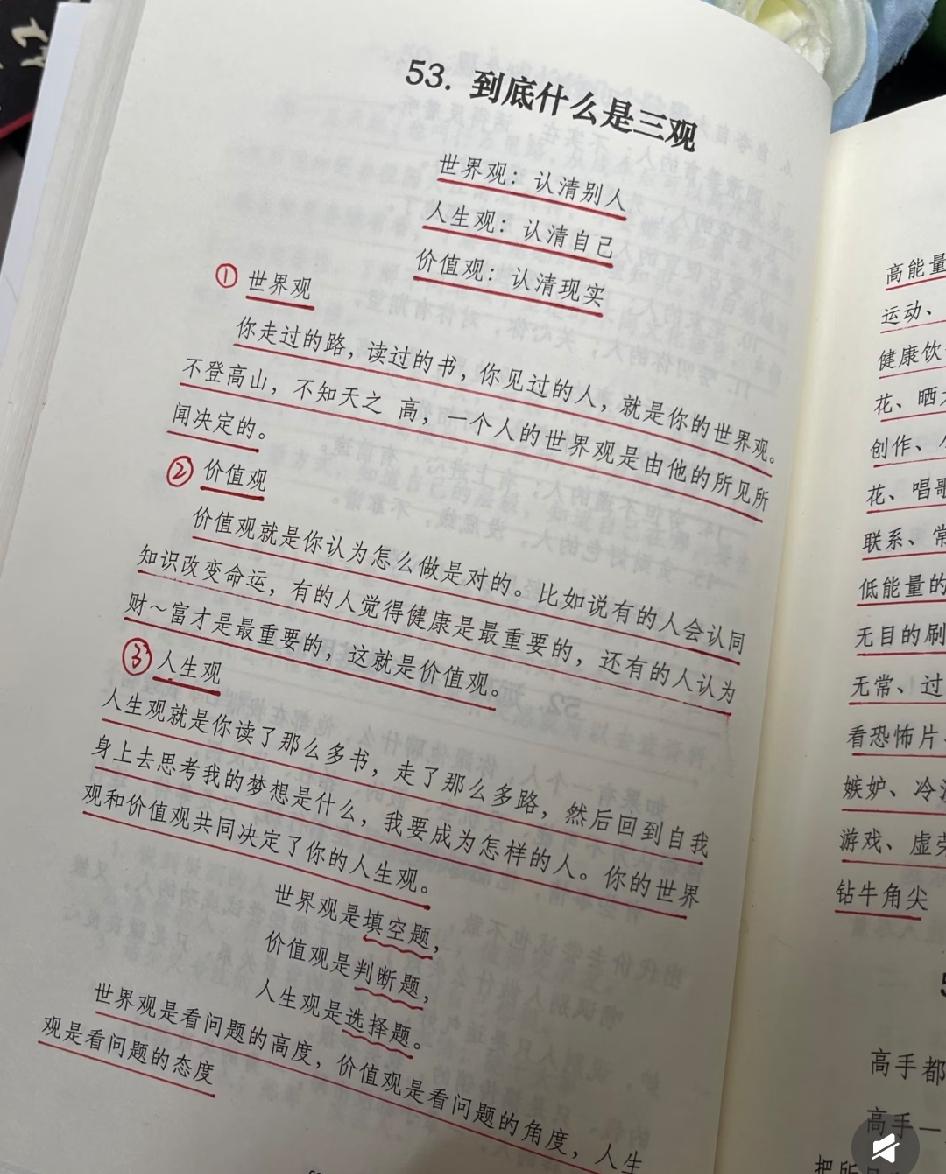 53. 到底什么是三观
世界观：认清别人
人生观：认清自己
价值观：认清现实
① 世界观
你走过的路，读过的书，你见过的人，就是你的世界观。
不登高山，不知天之 高，一个人的世界观是由他的所见所
闻决定的。
② 价值观
价值观就是你认为怎么做是对的。比如说有的人会认同
知识改变命运，有的人觉得健康是最重要的，还有的人认为
财～富才是最重要的，这就是价值观。
③ 人生观
人生观就是你读了那么多书，走了那么多路，然后回到自我
身上去思考我的梦想是什么，我要成为怎样的人。你的世界
观和价值观共同决定了你的人生观。
世界观是填空题，
价值观是判断题，
人生观是选择题。
世界观是看问题的高度，价值观是看问题的角度，人生
观是看问题的态度
高能量
运动、
健康饮
花、晒
创作、
花、唱歌
联系、常
低能量的
无目的刷
无常、过
看恐怖片
嫉妒、冷
游戏、虚荣
钻牛角尖
高手都
高手一